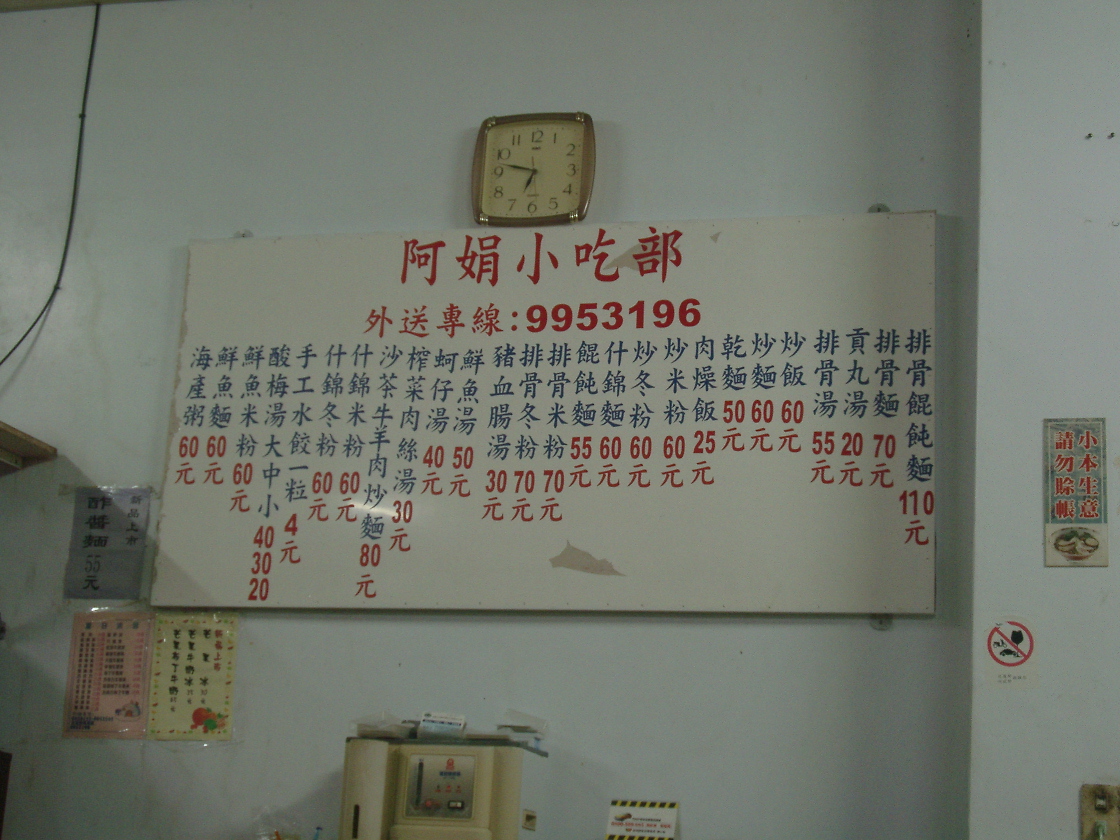 阿娟小吃部
外送專線:9953196
排骨餛飩麵110元
排骨麵70元
貢丸湯20元
排骨湯55元
炒飯60元
炒麵60元
乾麵50元
肉燥飯25元
炒米粉60元
炒冬粉60元
什錦麵60元
餛飩麵55元
排骨米粉70元
排骨冬粉70元
豬血腸湯30元
鮮魚湯50元
蚵仔湯40元
榨菜肉絲湯30元
沙茶牛羊肉炒麵80元
什錦米粉60元
什錦冬粉60元
手工水餃一粒4元
酸梅湯大中小40 30 20
鮮魚米粉60元
鮮魚麵60元
海產粥60元
小本生意
請勿賒帳
新品上市
炸醬麵55元
新品上市
11 12 1
10 2
9 3
8 4
7 6 5